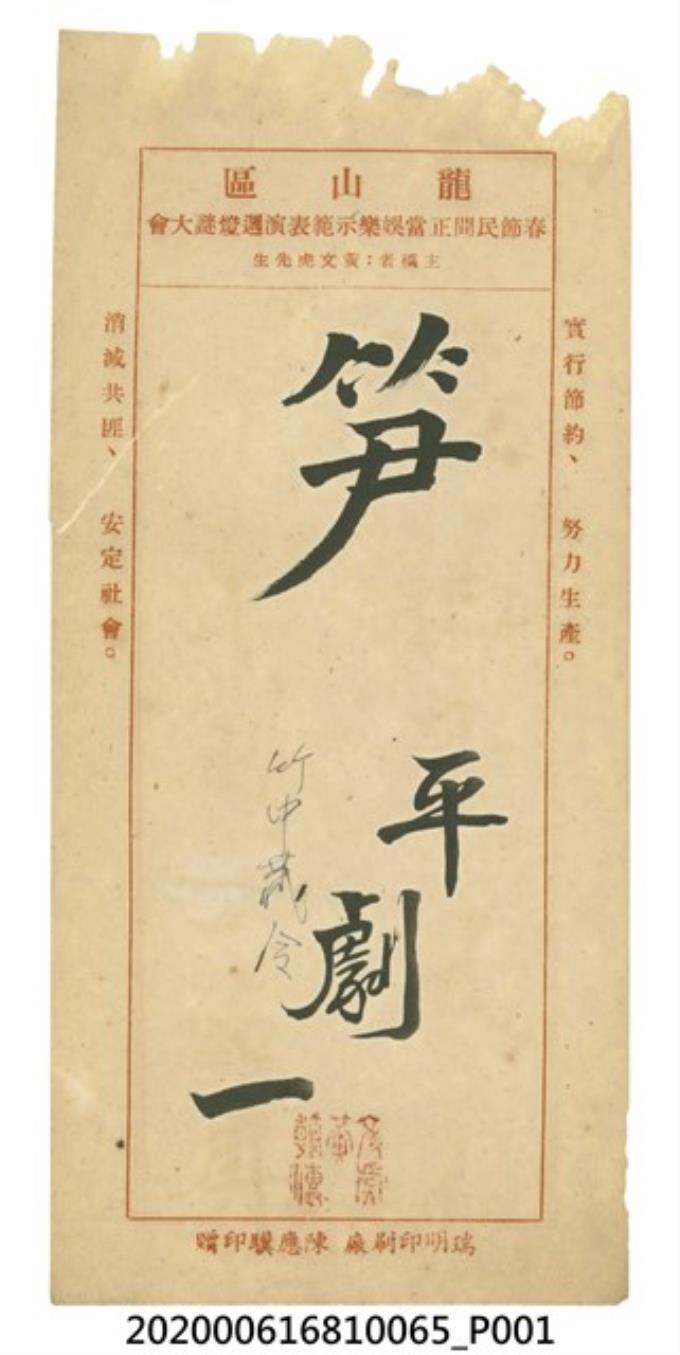 龍山區
春節民間正當娛樂示範表演選燈謎大會
主稿者：黃文虎先生
實行節約、努力生產。
笋
平劇一
竹中藏令
消滅共匪、安定社會。
瑞明印刷廠 陳應驥印贈
202000616810065_P001